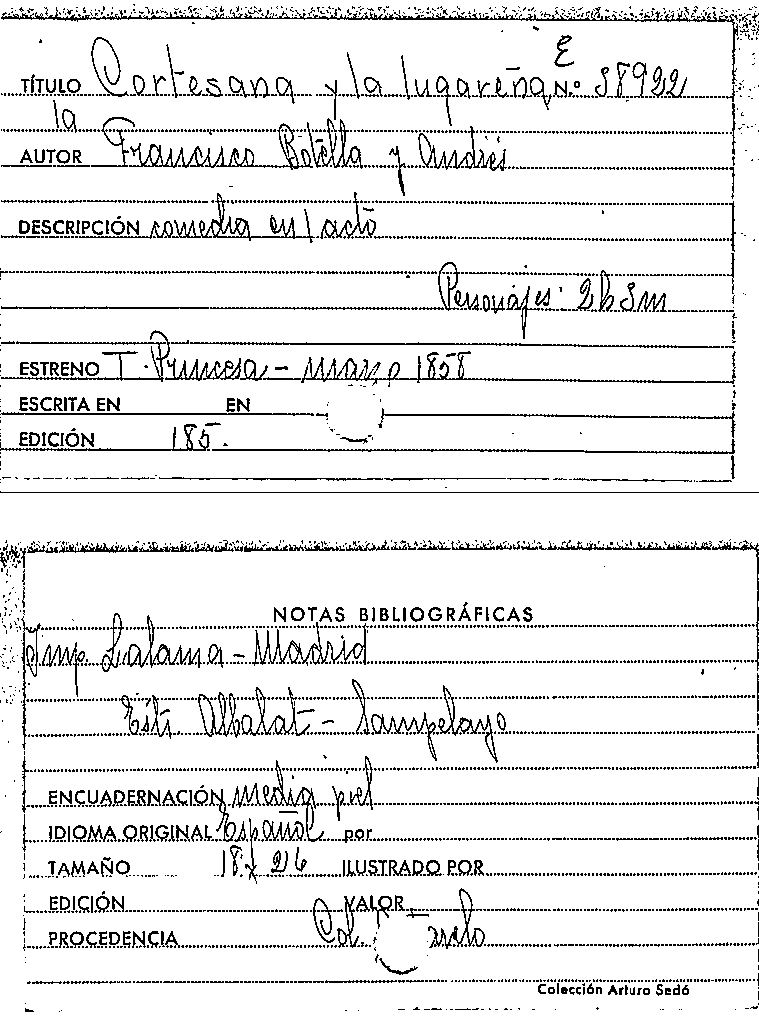 E
TÍTULO Cortesana y la lugareña N.º 58922
la
AUTOR Francisco Botella y Andrés
DESCRIPCIÓN comedia en 1 acto
Personajes: 2h 3m
ESTRENO T. Princesa - marzo 1858
ESCRITA EN EN
EDICIÓN 185.
NOTAS BIBLIOGRÁFICAS
Imp. Lalama - Madrid
Albalat - Sampelayo
ENCUADERNACIÓN media piel
IDIOMA ORIGINAL Español por
TAMAÑO 18 x 26 ILUSTRADO POR
EDICIÓN VALOR
PROCEDENCIA Col.
Colección Arturo Sedó